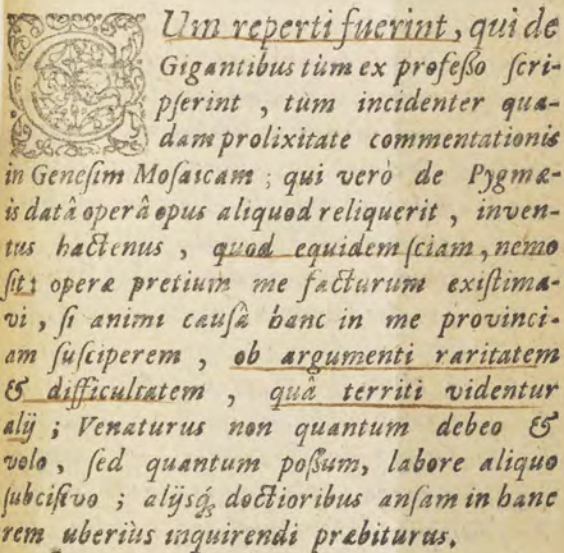 CUm reperti fuerint, qui de
Gigantibus tùm ex professo scri-
pserint, tùm incidenter qua-
dam prolixitate commentationis
in Genesim Mosaicam; qui verò de Pygmæ-
is datâ operâ opus aliquod reliquerit, inven-
tus hactenus, quod equidem sciam, nemo
sit; operæ pretium me facturum existima-
vi, si animi causâ hanc in me provinci-
am susciperem, ob argumenti raritatem
& difficultatem, quâ territi videntur
alij; Venaturus non quantum debeo &
volo, sed quantum possum, labore aliquo
subcisivo; alijsq́; doctioribus ansam in hanc
rem uberiùs inquirendi præbiturus.